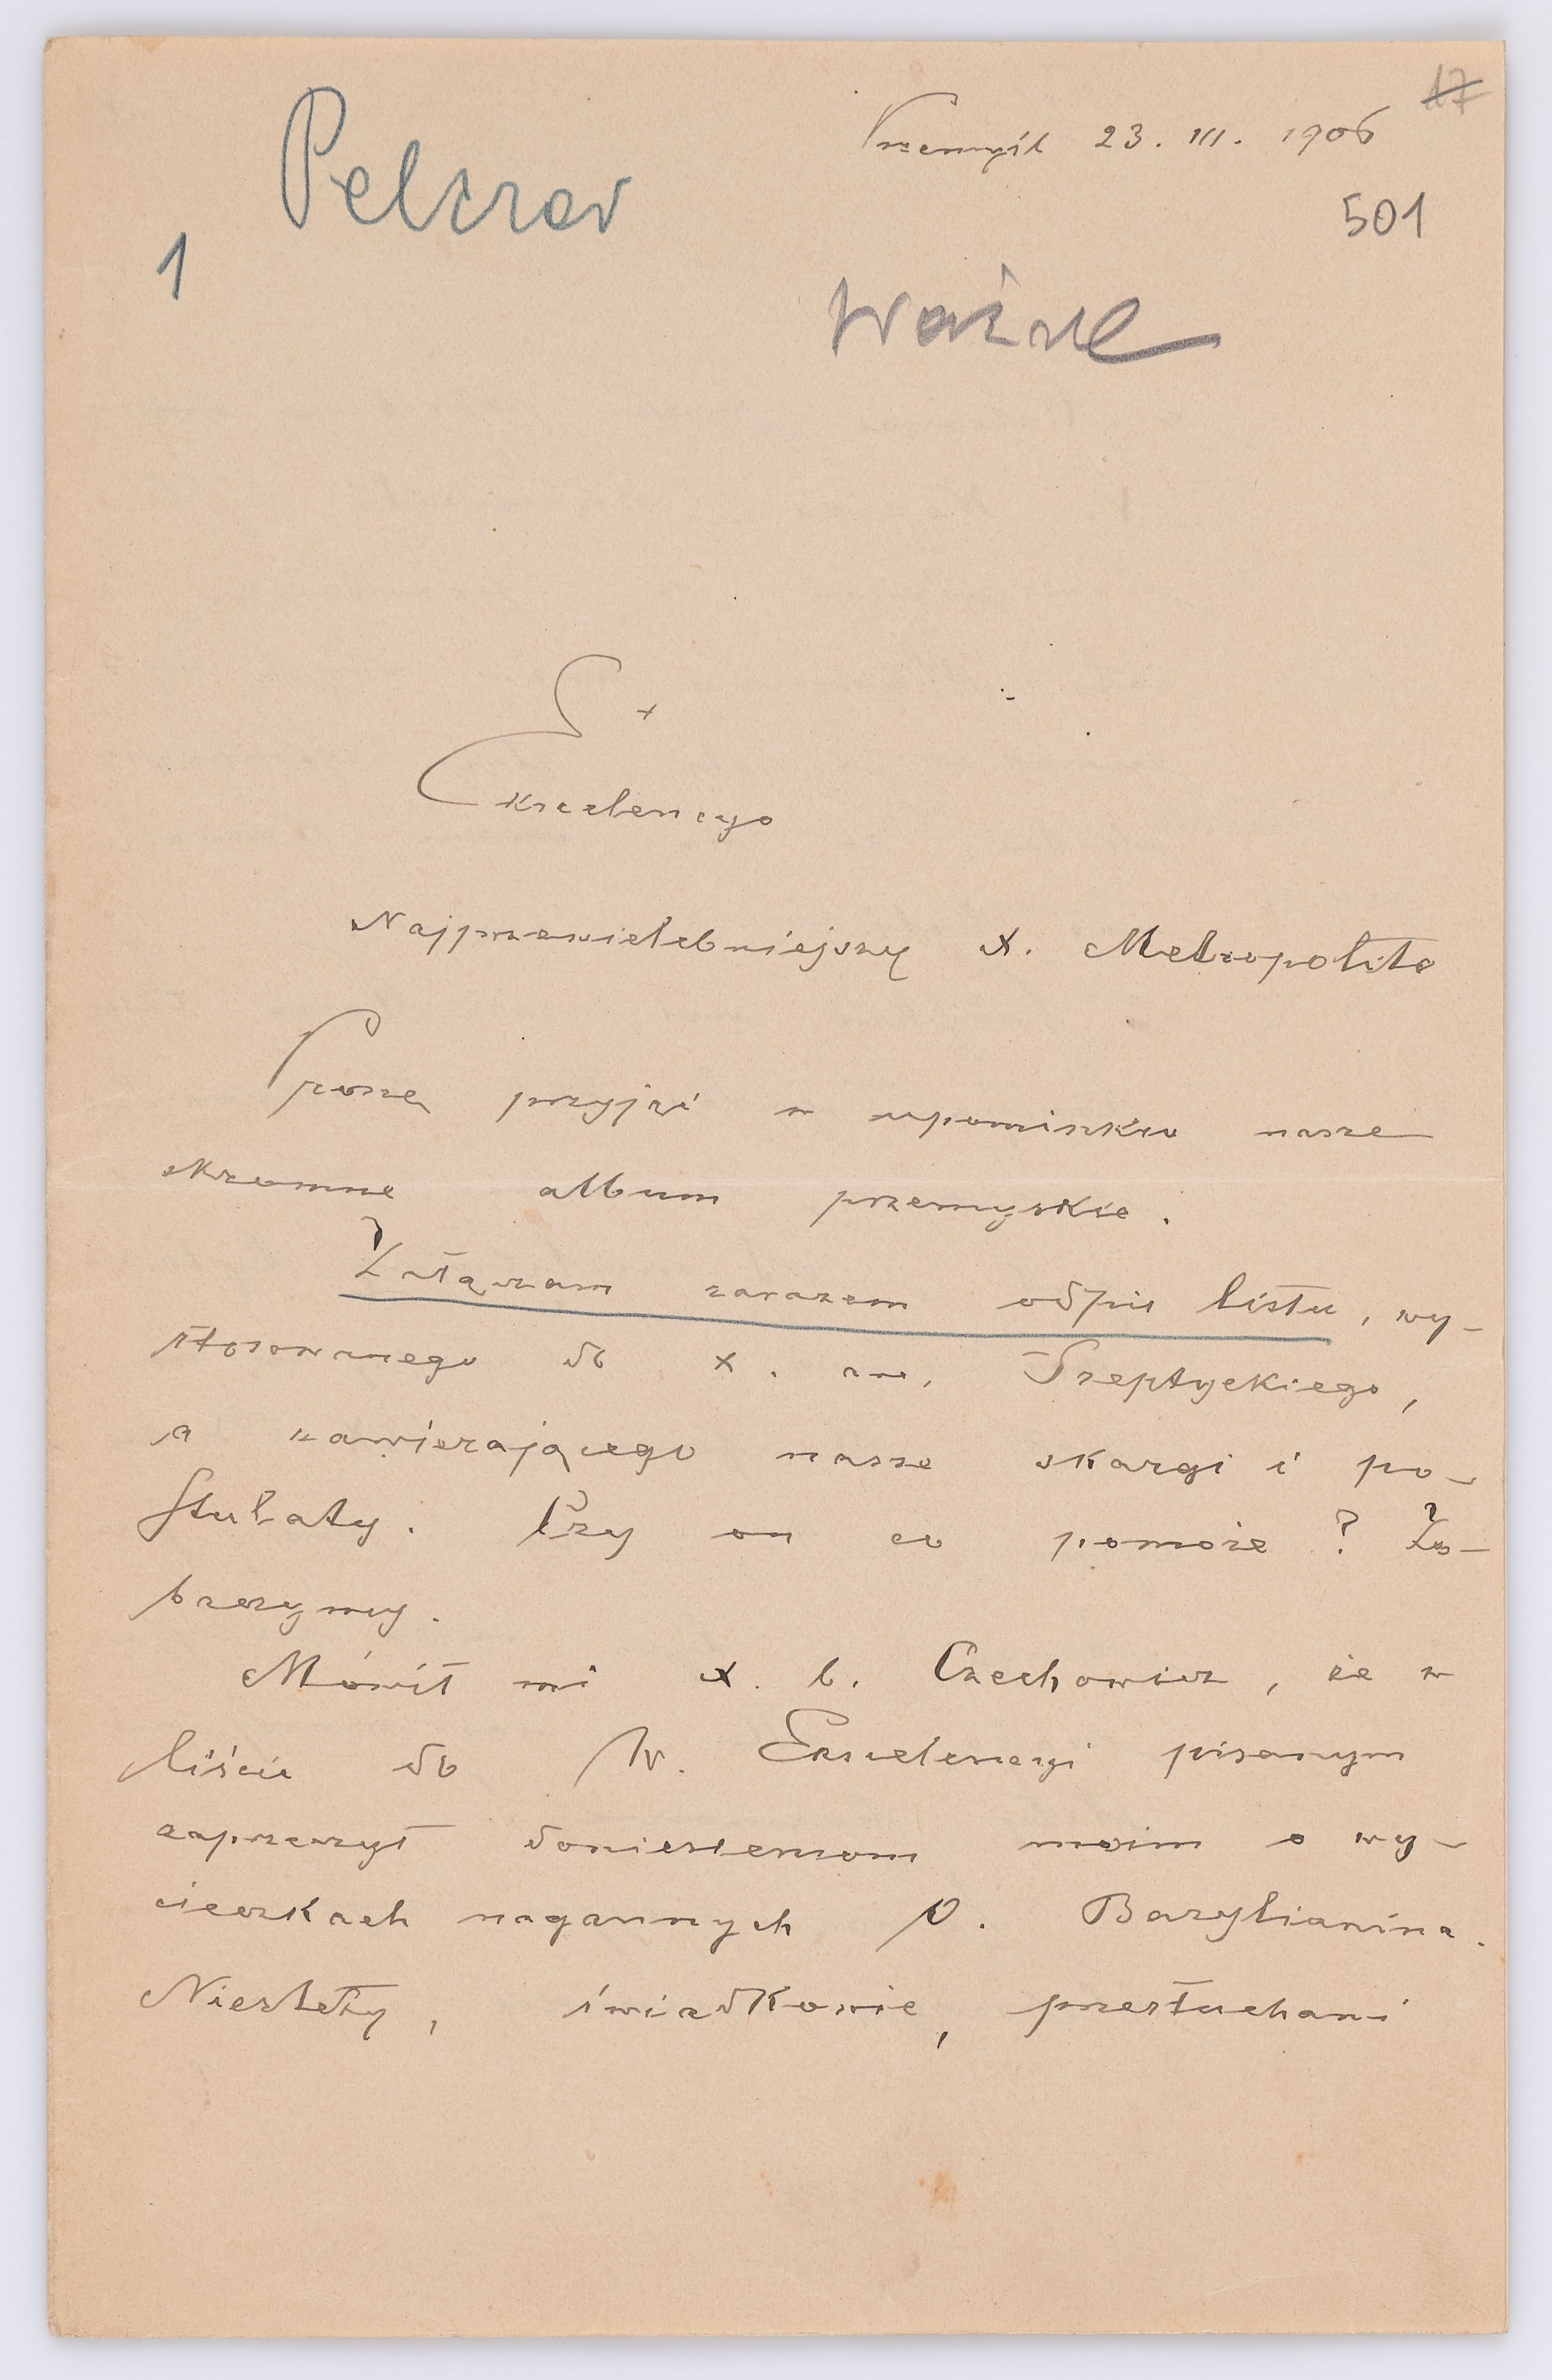 17
Przemyśl 23. III. 1906
Pelczar
501
1
Ważne
+
Ekscelencyo
Najprzewielebniejszy X. Metropolito
Proszę przyjąć w upominku nasze
skromne album przemyskie.
Załączam zarazem odpis listu, wy-
stosowanego do X. am. Szeptyckiego,
a zawierającego nasze skargi i po-
stulaty. Czy on co pomoże? Zo-
baczymy.
Mówił mi X. b. Czechowicz, że w
liście do W. Ekscelencyi pisanym
zaprzeczył doniesieniom moim o wy-
cieczkach nagannych O. Bazylianina.
Niestety, świadkowie, przesłuchani